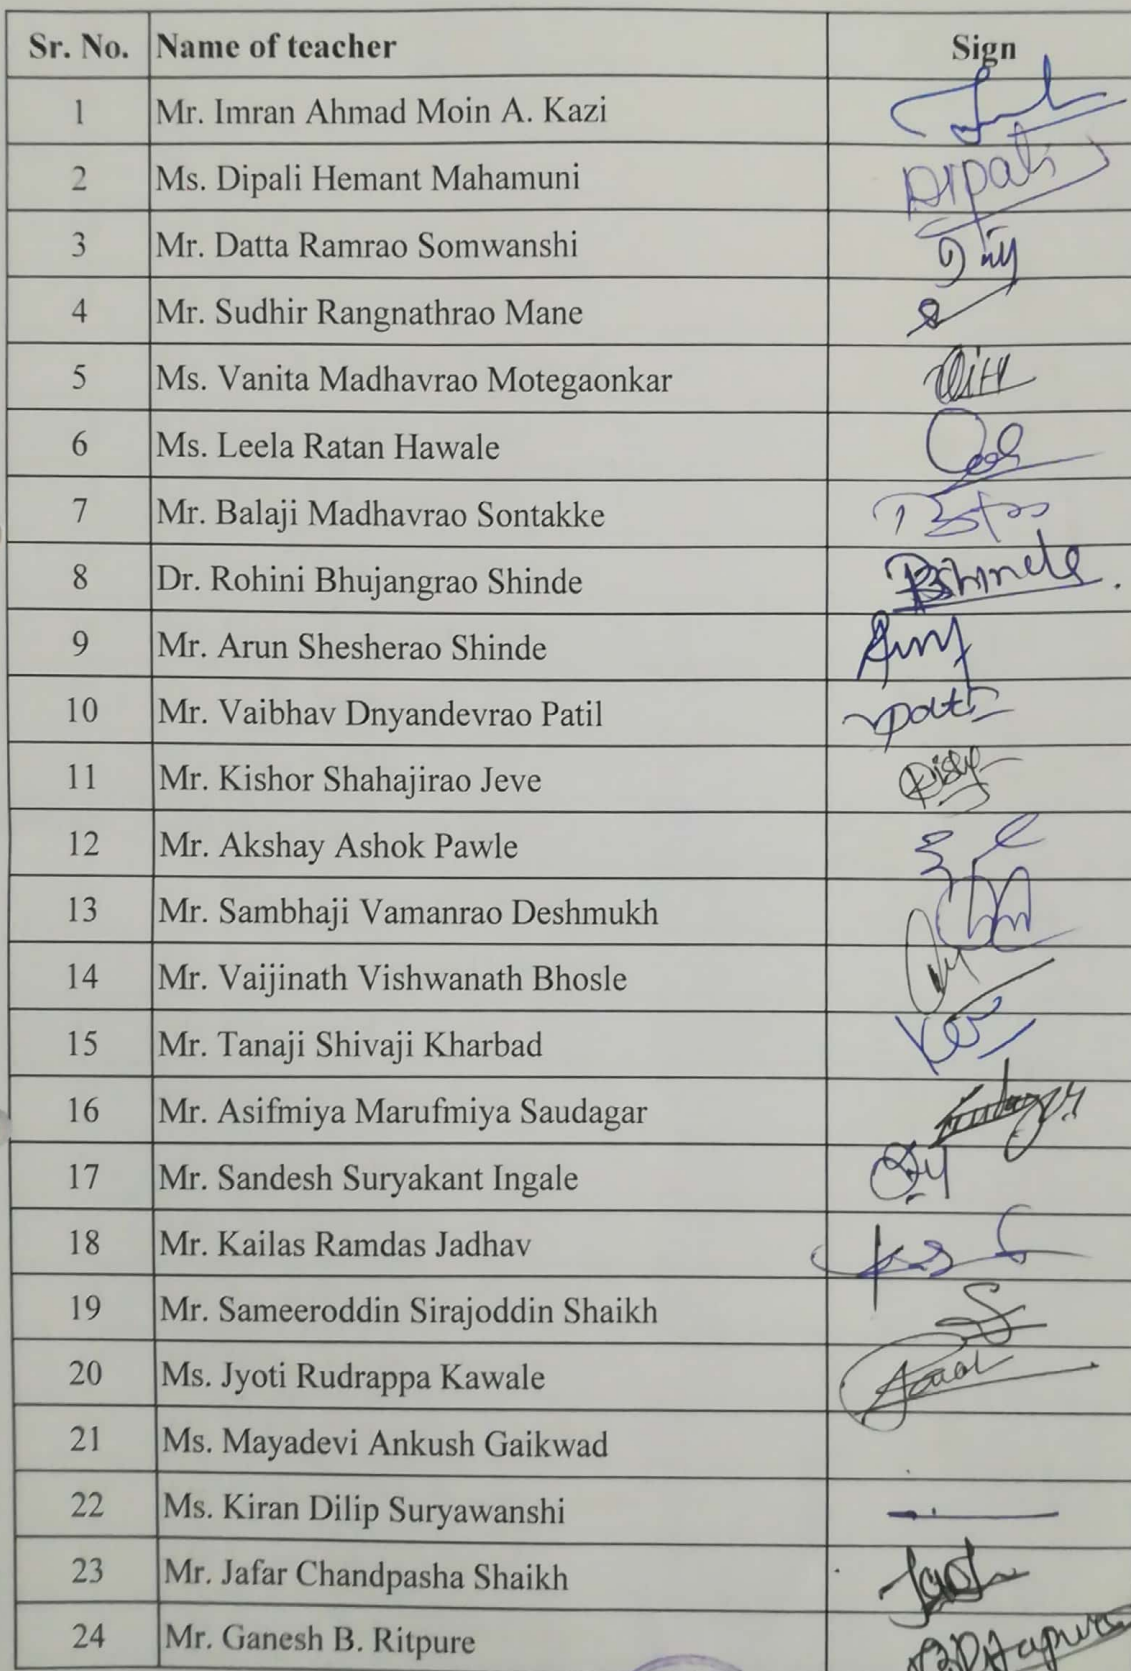 Sr. No. Name of teacher Sign
1 Mr. Imran Ahmad Moin A. Kazi
2 Ms. Dipali Hemant Mahamuni Dipali
3 Mr. Datta Ramrao Somwanshi
4 Mr. Sudhir Rangnathrao Mane
5 Ms. Vanita Madhavrao Motegaonkar
6 Ms. Leela Ratan Hawale
7 Mr. Balaji Madhavrao Sontakke
8 Dr. Rohini Bhujangrao Shinde
9 Mr. Arun Shesherao Shinde
10 Mr. Vaibhav Dnyandevrao Patil
11 Mr. Kishor Shahajirao Jeve
12 Mr. Akshay Ashok Pawle
13 Mr. Sambhaji Vamanrao Deshmukh
14 Mr. Vaijinath Vishwanath Bhosle
15 Mr. Tanaji Shivaji Kharbad
16 Mr. Asifmiya Marufmiya Saudagar
17 Mr. Sandesh Suryakant Ingale
18 Mr. Kailas Ramdas Jadhav
19 Mr. Sameeroddin Sirajoddin Shaikh
20 Ms. Jyoti Rudrappa Kawale
21 Ms. Mayadevi Ankush Gaikwad
22 Ms. Kiran Dilip Suryawanshi
23 Mr. Jafar Chandpasha Shaikh
24 Mr. Ganesh B. Ritpure